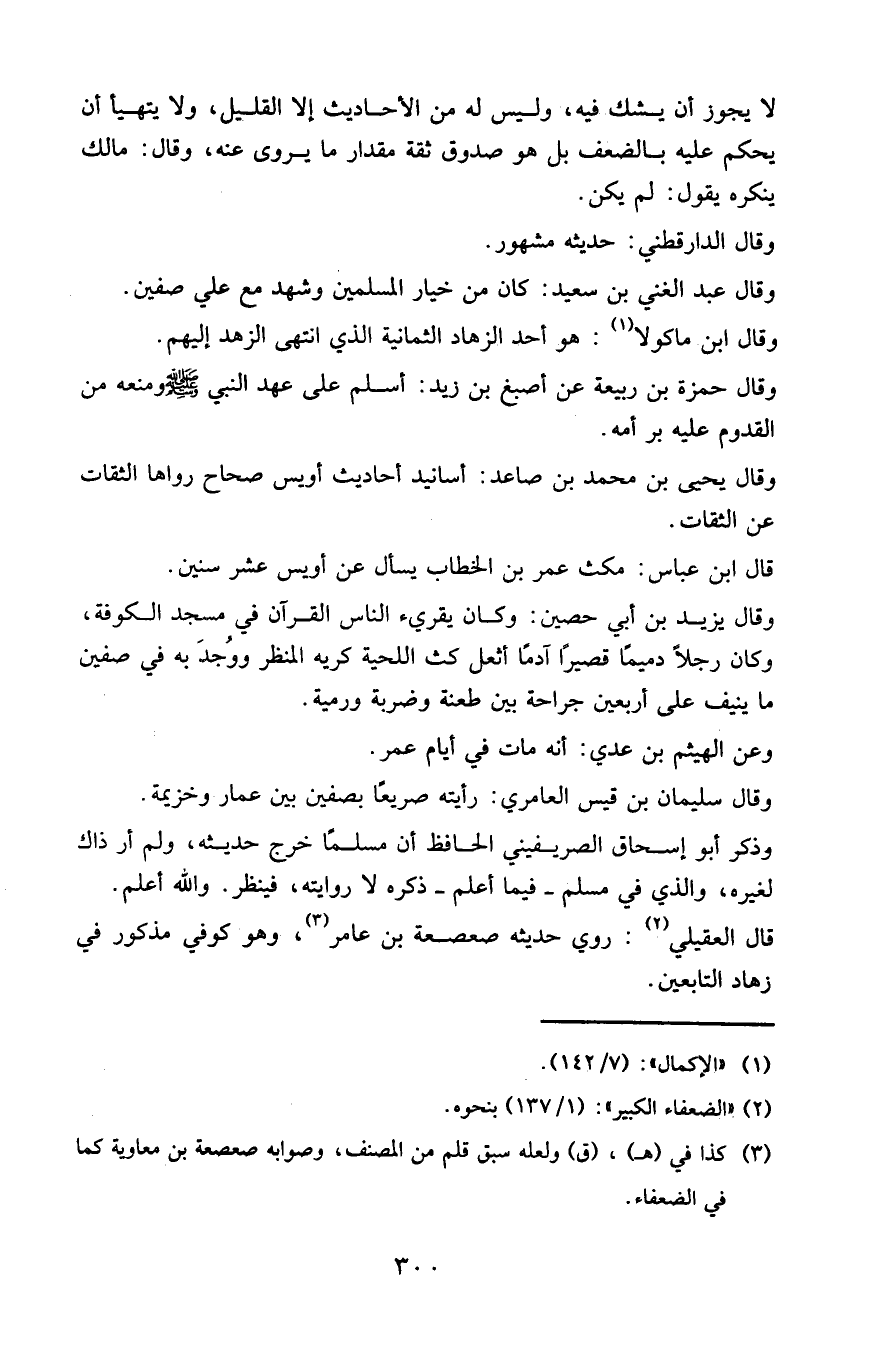 لا يجوز أن يشك فيه، وليس له من الأحاديث إلا القليل، ولا يتهيأ أن
يحكم عليه بالضعف بل هو صدوق ثقة مقدار ما يروى عنه، وقال: مالك
ينكره يقول: لم يكن.
وقال الدارقطني: حديثه مشهور.
وقال عبد الغني بن سعيد: كان من خيار المسلمين وشهد مع علي صفين.
وقال ابن ماكولا(١) : هو أحد الزهاد الثمانية الذي انتهى الزهد إليهم.
وقال حمزة بن ربيعة عن أصبغ بن زيد: أسلم على عهد النبي ﷺ ومنعه من
القدوم عليه بر أمه.
وقال يحيى بن محمد بن صاعد: أسانيد أحاديث أويس صحاح رواها الثقات
عن الثقات.
قال ابن عباس: مكث عمر بن الخطاب يسأل عن أويس عشر سنين.
وقال يزيد بن أبي حصين: وكان يقريء الناس القرآن في مسجد الكوفة،
وكان رجلاً دميمًا قصيرًا آدمًا أثعل كث اللحية كريه المنظر ووُجدَ به في صفين
ما ينيف على أربعين جراحة بين طعنة وضربة ورمية.
وعن الهيثم بن عدي: أنه مات في أيام عمر.
وقال سليمان بن قيس العامري: رأيته صريعًا بصفين بين عمار وخزيمة.
وذكر أبو إسحاق الصريفيني الحافظ أن مسلمًا خرج حديثه، ولم أر ذاك
لغيره، والذي في مسلم - فيما أعلم - ذكره لا روايته، فينظر. والله أعلم.
قال العقيلي(٢) : روي حديثه صعصعة بن عامر(٣)، وهو كوفي مذكور في
زهاد التابعين.
(١) «الإكمال»: (٧/ ١٤٢).
(٢) «الضعفاء الكبير»: (١/ ١٣٧) بنحوه.
(٣) كذا في (هـ) ، (ق) ولعله سبق قلم من المصنف، وصوابه صعصعة بن معاوية كما
في الضعفاء.
٣٠٠